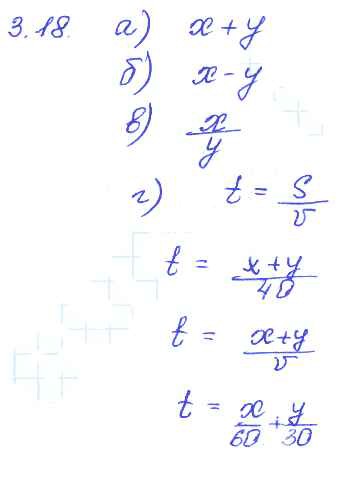 3.18. а) x + y
б) x - y
в) x/y
г) t = S/v
t = (x+y)/40
t = (x+y)/v
t = x/60 + y/30